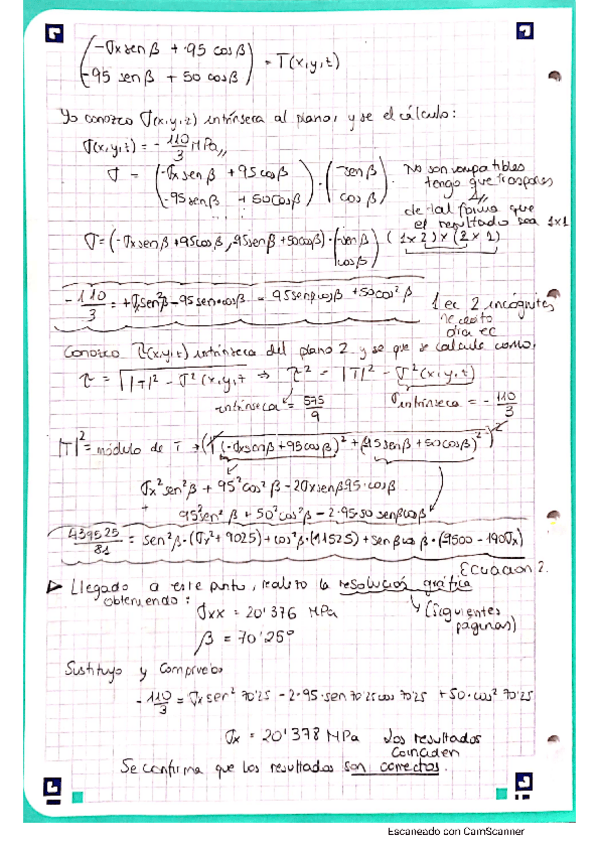 (-σx sen β + 95 cos β
-95 sen β + 50 cos β) = T(x,y,z)
Yo conozco σ(x,y,z) intrínseca al plano 1 y se el cálculo:
σ(x,y,z) = - 110/3 MPa,,
σ = (-σx sen β + 95 cos β
-95 sen β + 50 cos β) · (-sen β
cos β)
No son compatibles
tengo que trasponer
de tal forma que
el resultado sea 1x1
σ = (-σx sen β + 95 cos β, 95 sen β + 50 cos β) · (-sen β
cos β) (1x2) x (2x1)
- 110/3 = +σx sen² β - 95 sen · cos β - 95 sen β cos β + 50 cos² β
1 ec 2 incógnitas
necesito
otra ec
Conozco τ(x,y,z) intrínseca del plano 2 y se que se calcula como:
τ = √|T|² - σ²(x,y,z → τ² = |T|² - σ²(x,y,z)
intrínseca = 575/9 σ intrínseca = - 110/3
|T|² = módulo de T → (√(-σx sen β + 95 cos β)² + (95 sen β + 50 cos β)²)²
σx² sen² β + 95² cos² β - 2σx sen β 95 · cos β
+
95² sen² β + 50² cos² β - 2·95·50 sen β cos β
439525/81 = sen² β · (σx² + 9025) + cos² β · (11525) + sen β cos β · (-9500 - 190σx)
Ecuacion 2.
Llegado a este punto, realizo la resolución gráfica
obteniendo:
(siguientes
paginas)
σxx = 20'376 MPa
β = 70'25°
Sustituyo y compruebo
- 110/3 = σx sen² 70'25 - 2·95·sen 70'25 cos 70'25 + 50·cos² 70'25
σx = 20'378 MPa Los resultados
coinciden
Se confirma que los resultados son correctos.
Escaneado con CamScanner